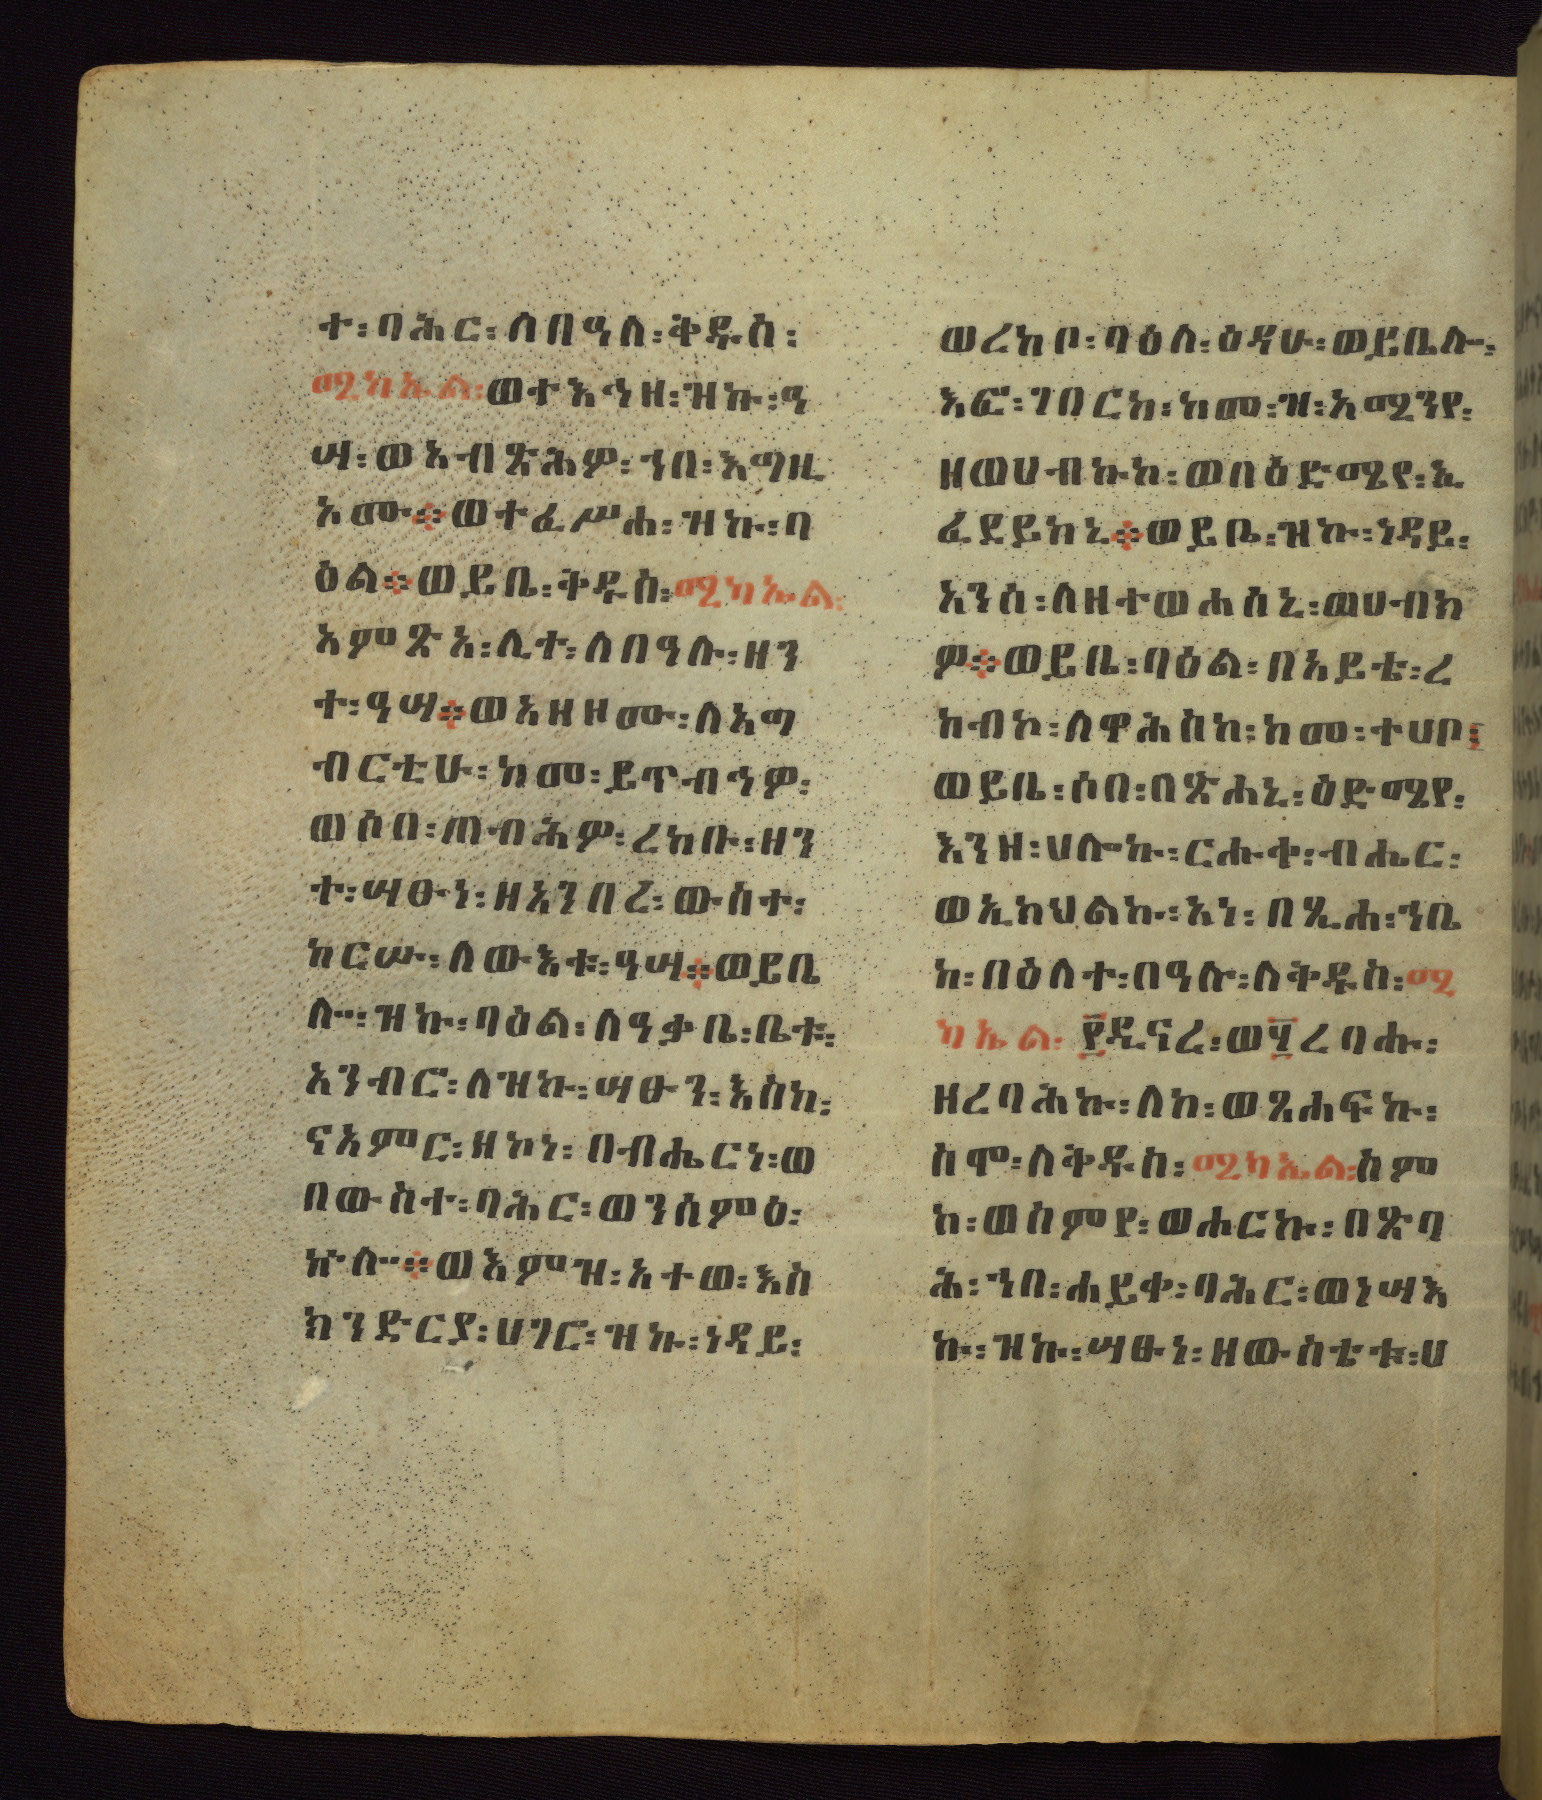 ተ፡ባሕር፡ለበዓለ፡ቅዱስ፡
ሚካኤል፡ወተአኀዘ፡ዝኩ፡ዓ
ሣ፡ወአብጽሕዎ፡ኀበ፡እግዚ
አሙ።ወተፈሥሐ፡ዝኩ፡ባ
ዕል።ወይቤ፡ቅዱስ፡ሚካኤል፡
አምጽአ፡ሊተ፡ለበዓሉ፡ዘን
ተ፡ዓሣ።ወአዘዞሙ፡ለአግ
ብርቲሁ፡ከመ፡ይጥብኅዎ፡
ወሶበ፡ጠብሕዎ፡ረከቡ፡ዘን
ተ፡ሣፁነ፡ዘአንበረ፡ውስተ፡
ከርሡ፡ለውእቱ፡ዓሣ።ወይቤ
ሎ፡ዝኩ፡ባዕል፡ለዓቃቤ፡ቤቱ፡
አንብሮ፡ለዝኩ፡ሣፁን፡እስከ፡
ናአምር፡ዘኮነ፡በብሔርነ፡ወ
በውስተ፡ባሕር፡ወንስምዕ፡
ኵሎ።ወእምዝ፡አተወ፡እስ
ክንድርያ፡ሀገሮ፡ዝኩ፡ነዳይ፡
ወረከቦ፡ባዕለ፡ዕዳሁ፡ወይቤሎ፡
እፎ፡ገበርከ፡ከመ፡ዝ፡አማኅየ፡
ዘወሀብኩከ፡ወበዕድሜየ፡ኢ
ፈደይከኒ።ወይቤ፡ዝኩ፡ነዳይ፡
አንሰ፡ለዘተወሐሰኒ፡ወሀብክ
ዎ።ወይቤ፡ባዕል፡በአይቴ፡ረ
ከብኮ፡ለዋሕስከ፡ከመ፡ተሀቦ፡
ወይቤ፡ሶበ፡በጽሐኒ፡ዕድሜየ፡
እንዘ፡ሀሎኩ፡ርሑቀ፡ብሔር፡
ወኢክህልኩ፡አነ፡በጺሐ፡ኀቤ
ከ፡በዕለተ፡በዓሉ፡ለቅዱስ፡ሚ
ካኤል፡፻ዲናረ፡ወ፶ረባሑ፡
ዘረባሕኩ፡ለከ፡ወጸሐፍኩ፡
ስሞ፡ለቅዱስ፡ሚካኤል፡ስም
ከ፡ወስምየ፡ወሐርኩ፡በጽባ
ሕ፡ኀበ፡ሐይቀ፡ባሕር፡ወነሣእ
ኩ፡ዝኩ፡ሣፁነ፡ዘውስቴቱ፡ሀ